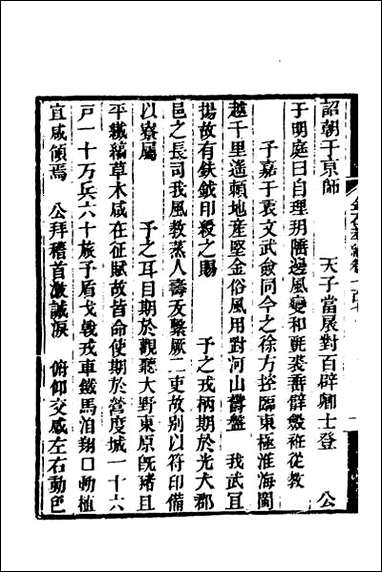 詔朝于京師　　天子當展對百辟卿士登　　公
于明庭曰自理邊風變和毳裘善僻從教
子嘉于衷文武僉同今之徐方控臨東極淮海閩
越千里遙頼地産堅金俗風用對河山鬱盤　我武且
揚故有鈇鉞印綬之賜　　予之戎柄期於光大郡
邑之長司我風教蒸人壽友繫厥二吏故別以符印備
以寮屬　　予之耳目期於觀聽大野東原既瀦且
平纎縞草木咸在征賦故皆命使期於營度城一十六
戸一十万兵六十旅予盾戈戟戎車鐵馬洎翔口動植
宜咸領焉　公拜稽首激誠淚　　俯仰交感左右動色
金石萃編卷一百七